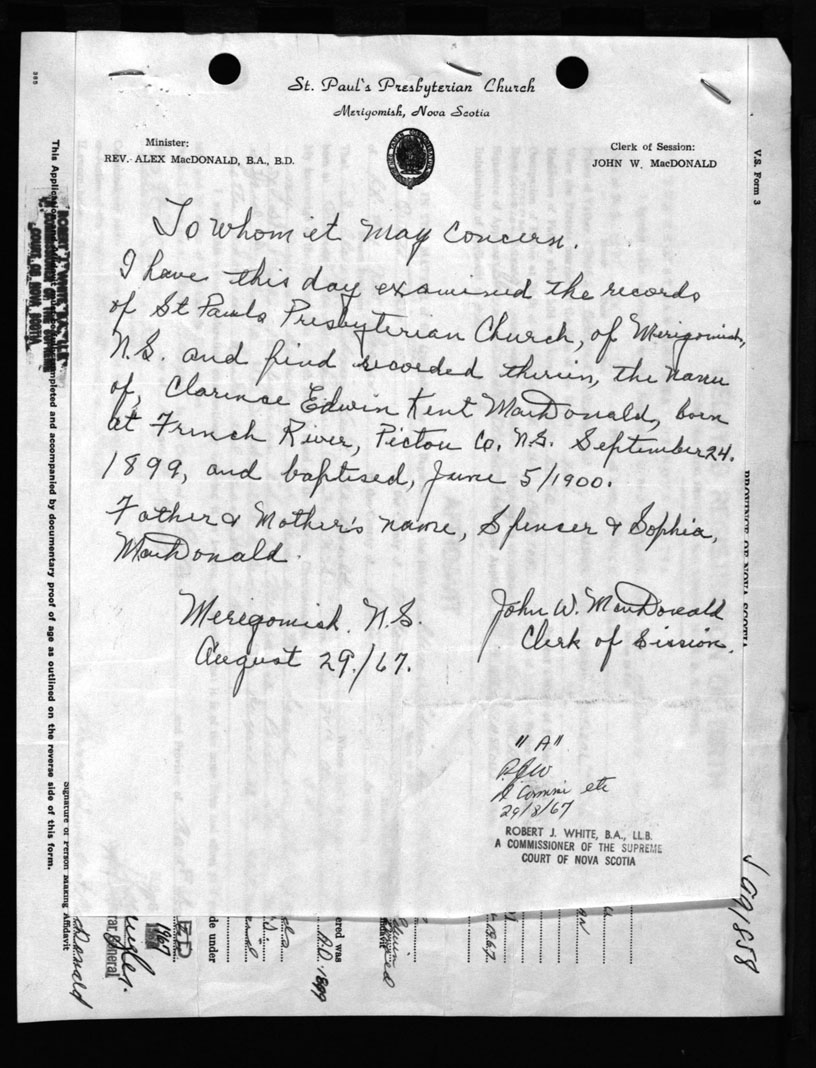 St. Paul's Presbyterian Church
Merigomish, Nova Scotia
Minister:
REV. ALEX MacDONALD, B.A., B.D.
Clerk of Session:
JOHN W. MacDONALD
To Whom it May Concern.
I have this day examined the records
of St Pauls Presbyterian Church, of Merigomish,
N.S. and find recorded therein, the name
of, Clarence Edwin Kent MacDonald, born
at French River, Pictou Co. N.S. September 24.
1899, and baptised, June 5/1900.
Father & Mother's name, Spenser & Sophia,
MacDonald.
Merigomish. N.S.
August 29./67.
John W. MacDonald
Clerk of Session.
"A"
RJW
A Commr etc
29/8/67
ROBERT J. WHITE, B.A., LL.B.
A COMMISSIONER OF THE SUPREME
COURT OF NOVA SCOTIA
V.S. Form 3
PROVINCE OF NOVA SCOTIA
091858
385
This Application completed and accompanied by documentary proof of age as outlined on the reverse side of this form.
ROBERT J. WHITE, B.A., LL.B.
COURT OF NOVA SCOTIA
Signature of Person Making Affidavit
Donald
General
1967
de under
ered was
A.D. 1899
Edwin
1967